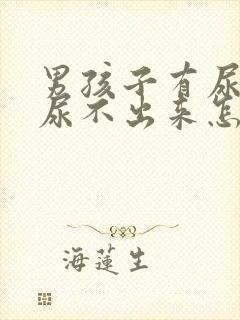 男孩子有尿
尿不出来怎
海莲生